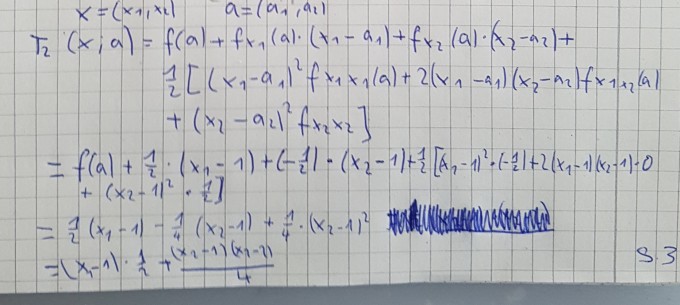 x = (x1, x2)    a = (a1, a2)
T2 (x; a) = f(a) + fx1(a) · (x1 - a1) + fx2(a) · (x2 - a2) +
1/2 [(x1 - a1)² fx1x1(a) + 2(x1 - a1)(x2 - a2) fx1x2(a)
+ (x2 - a2)² fx2x2]
= f(a) + 1/2 · (x1 - 1) + (-1/2) · (x2 - 1) + 1/2 [(x1 - 1)² · (-1/2) + 2(x1 - 1)(x2 - 1) · 0
+ (x2 - 1)² · 1/2]
= 1/2 (x1 - 1) - 1/4 (x2 - 1) + 1/4 · (x2 - 1)²
= (x1 - 1) · 1/2 + (x2 - 1)(x2 - 2)/4
S. 3